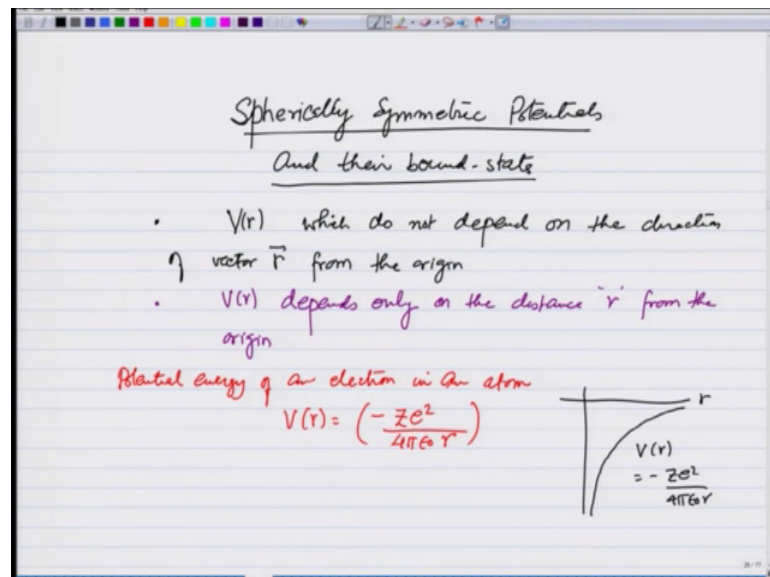 Spherically Symmetric Potentials
And their bound-state
• V(r) which do not depend on the direction
of vector r⃗ from the origin
• V(r) depends only on the distance 'r' from the
origin
Potential energy of an electron in an atom
V(r) = (-Ze²/4πϵ₀r)
r
V(r)
= -Ze²/4πϵ₀r